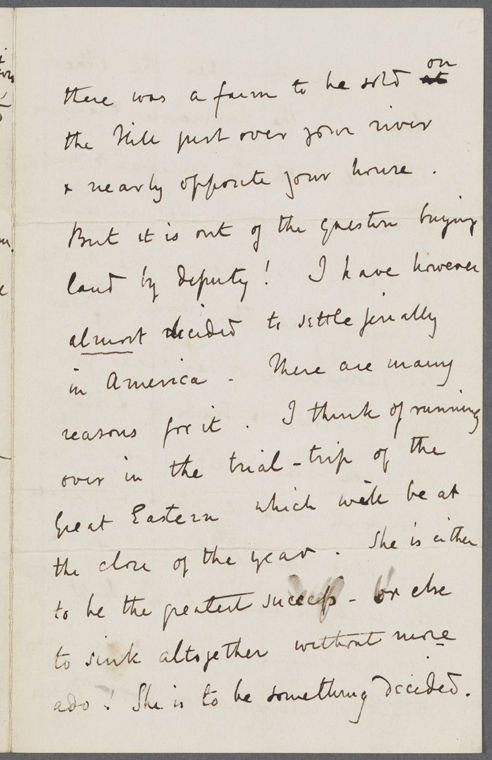 there was a farm to be sold at on
the Hill just over your river
& nearly opposite your house.
But it is out of the question buying
land by deputy! I have however
almost decided to settle finally
in America. There are many
reasons for it. I think of running
over in the trial-trip of the
Great Eastern which will be at
the close of the year. She is either
to be the greatest success - or else
to sink altogether without more
ado! She is to be something decided.